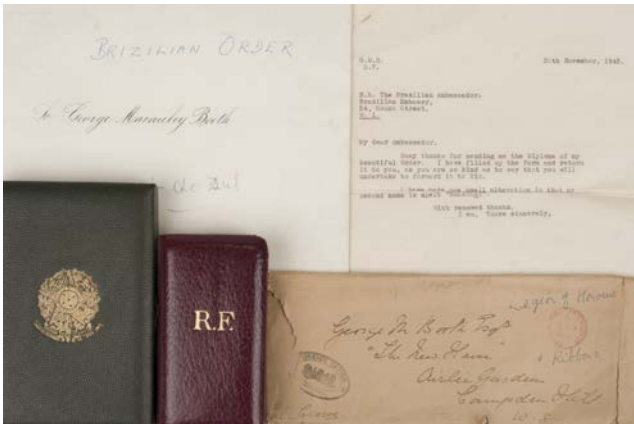 BRIZILIAN ORDER
To George Macauley Booth
G.M.B.
20th November, 1943.
H.E. The Brazilian Ambassador.
Brazilian Embassy,
54, Mount Street,
W. 1.
My dear Ambassador.
Many thanks for sending me the Diploma of my
beautiful Order. I have filled up the form and return
it to you, as you are so kind as to say that you will
undertake to forward it to Rio.
I have made one small alteration in that my
second name is spelt
With renewed thanks.
I am, Yours sincerely,
R.F.
Legion of Honour
& Ribbons
George M Booth Esqre
"The New Haven"
Airlie Gardens
Campden Hill
W. 8